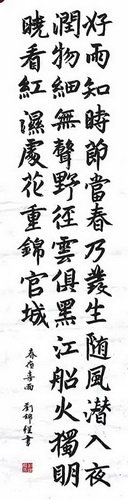 好雨知時節當春乃發生随風潜入夜
潤物細無聲野徑雲俱黑江船火獨明
曉看紅濕處花重錦官城
春夜喜雨 劉錦程書